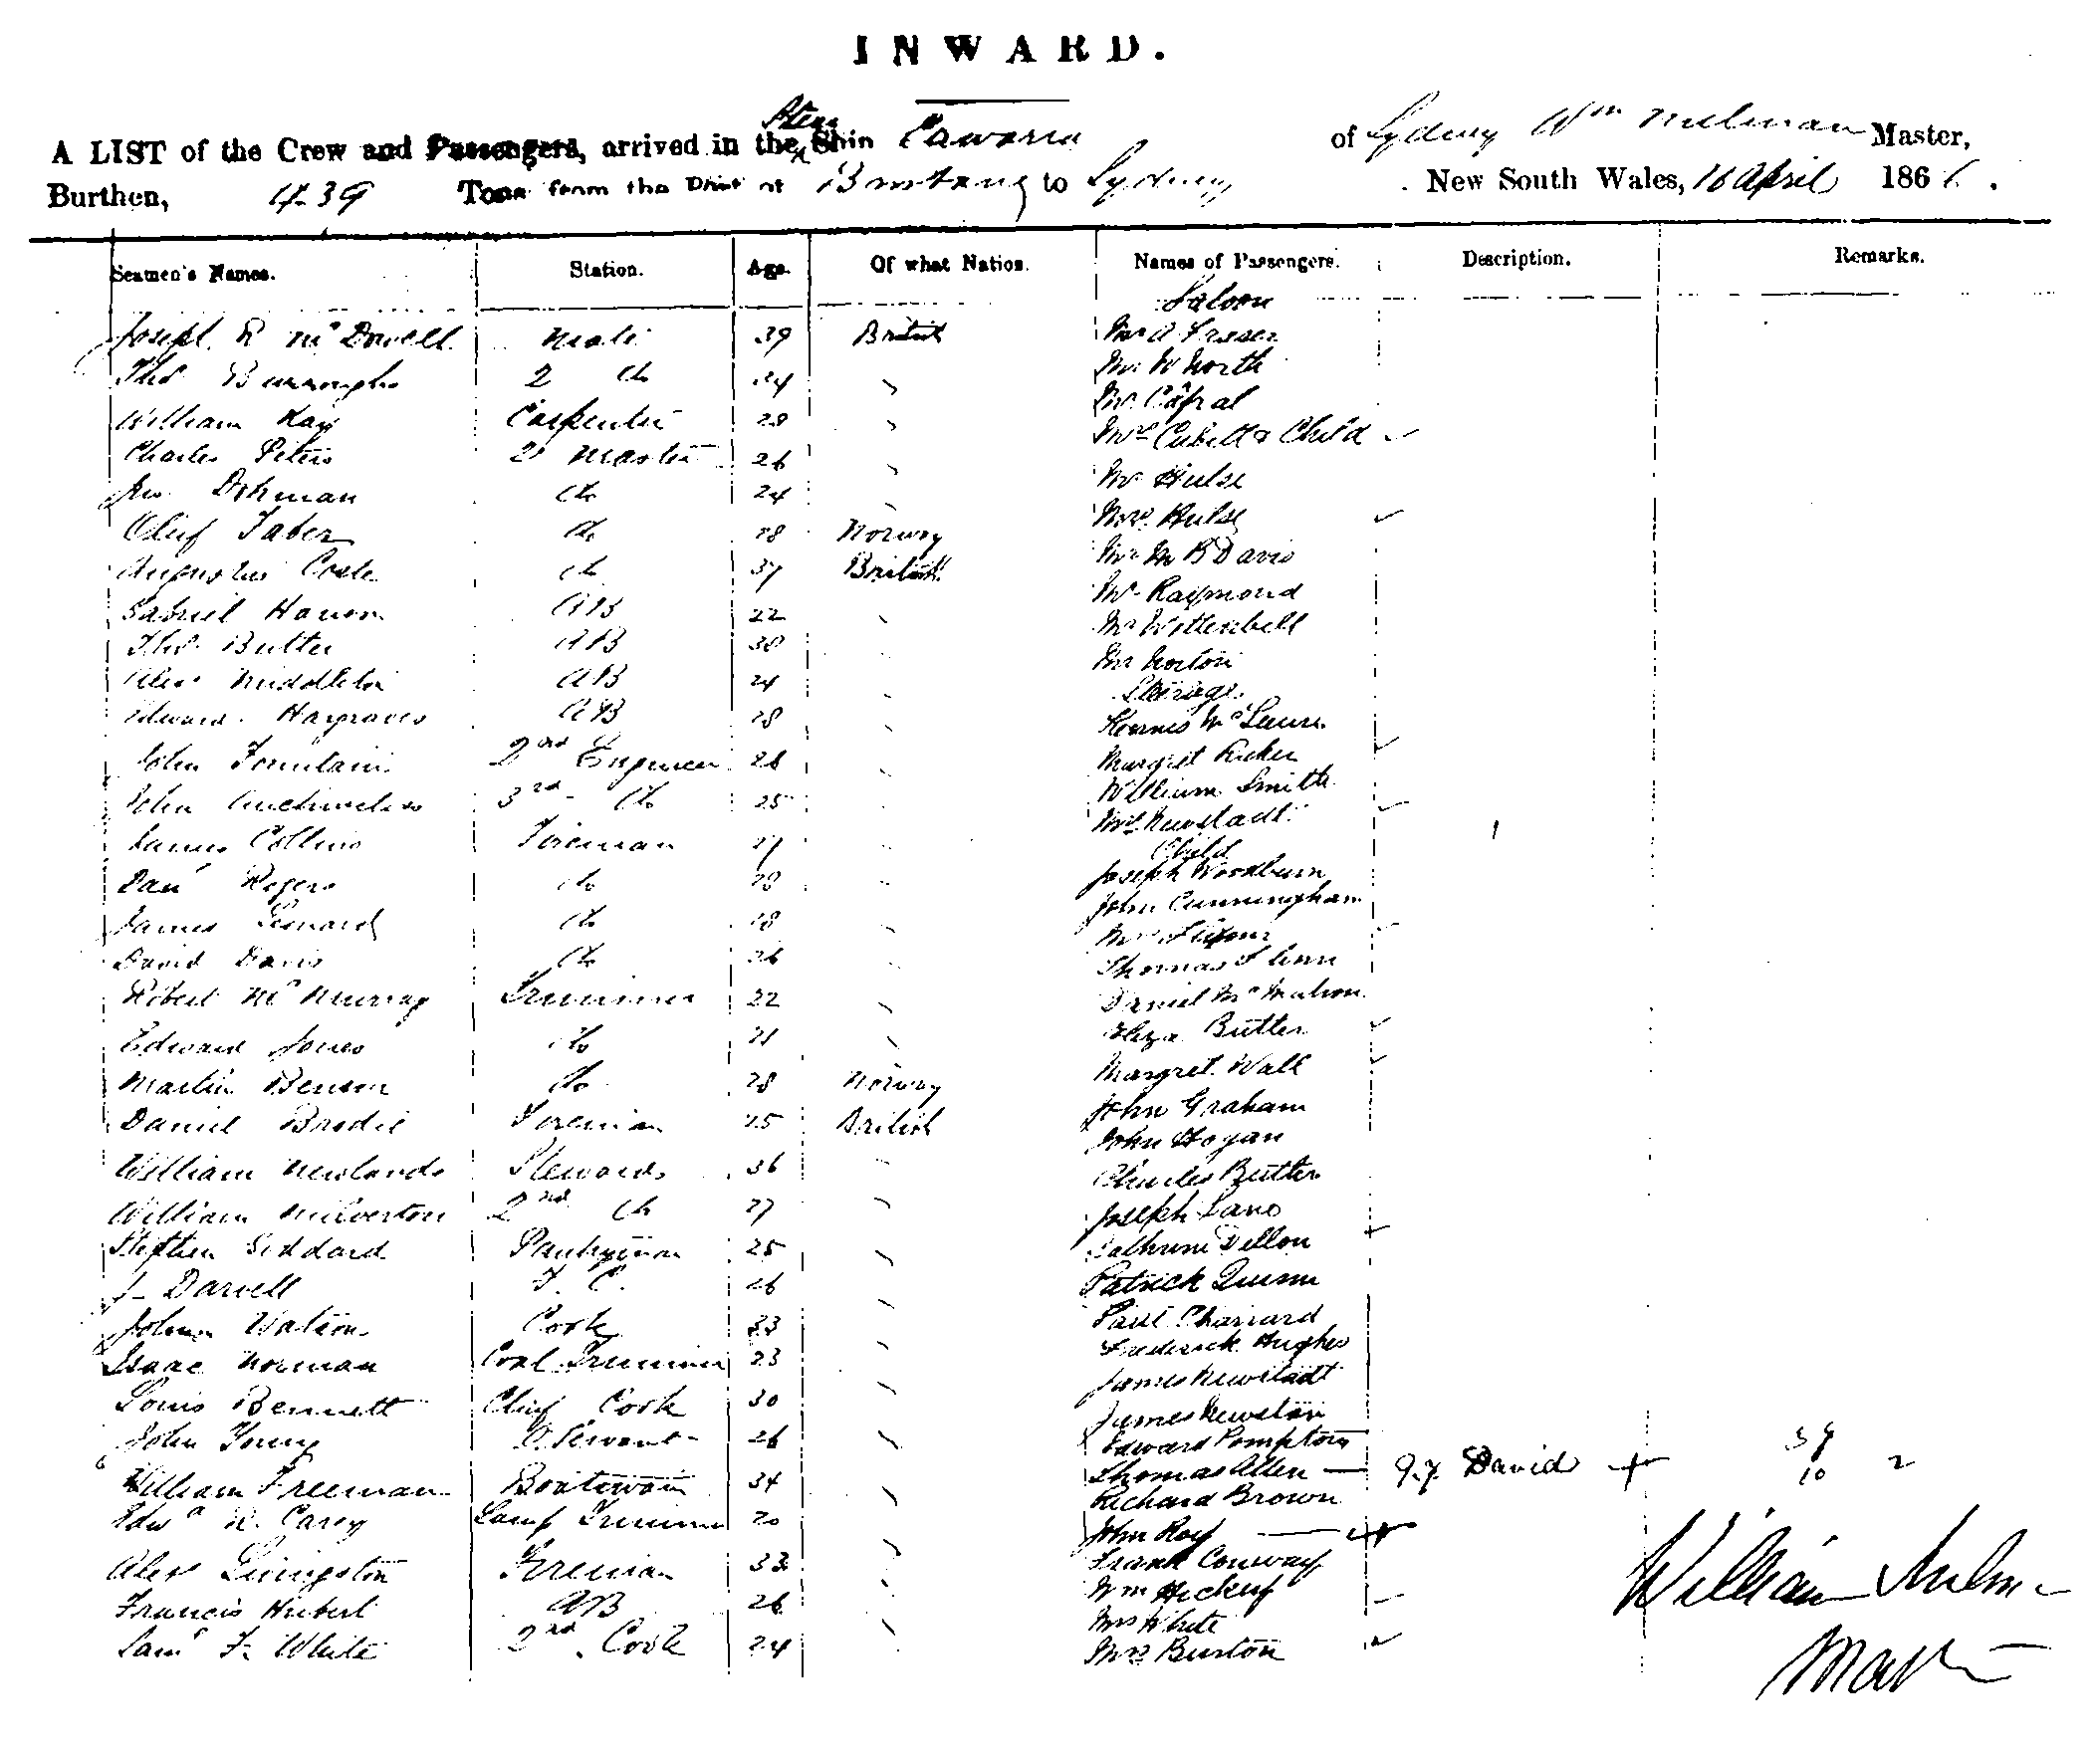 INWARD.
A LIST of the Crew and Passengers, arrived in the Steam Ship Cawarra of Sydney Wm Milman Master,
Burthen, 439 Tons from the Port of to Sydney New South Wales, 16 April 1866.
Seamen's Names. Station. Age. Of what Nation. Names of Passengers. Description. Remarks.
Saloon
Joseph R McDowell Mate 39 British Mr A Fraser
Thos Burroughs 2 do 24 Mr W North
William Kay Carpenter 28 Mr Capral
Charles Peters 2 Master 26 Mrs Cubitt & Child
Jno Dohman do 24 Mr Hulse
Oluf Faber do 28 Norway Mrs Hulse
Augustus do 37 British Mr M B Davis
Gabriel AB 22 Mr Raymond
Thos Butter AB 30 Mr Wottenbell
Alexr Middleton AB 24 Mr Norton
Steerage
Edward Hargraves AB 28
John Fountain 2nd Engineer 26 Margret
John 3rd do 25 William Smith
Mrs Newstadt
James Collins Fireman 27 Child
Danl Rogers do 28 Joseph Woodburn
John Cunningham
James Leonard do 28 Mrs
David Davis do 26 Thomas
Robert McMurray Trimmer 22 Daniel McMahon
Edward Jones do 21 Eliza Butter
Martin Benson do 28 Norway Margret Wall
Daniel Brodie Fireman 25 British John Graham
John Hogan
William Newlands Steward 36 Charles Butter
William Milverton 2nd do 27 Joseph Lano
Stephen Goddard Pantryman 25 Cathrine Dillon
J Darvell F. C. 26 Patrick Quinn
John Watson Cook 33 Paul
Frederick Hughes
Isaac Norman Coal Trimmer 23 James Newstadt
Louis Bennett Chief Cook 30 James
John Young Servant 26 Edward Pompton
William Freeman Boatswain 34 Thomas Allen — J.J. David 39
10 2
Richard Brown
Edwd R. Carey Lamp Trimmer 20 John Roy
Alexr Livingston Fireman 33 Frank Conway
Francis Hubert AB 26 Wm Hickey
Mrs White
Saml F. White 2nd Cook 24 Mrs Burton
William Milman
Master